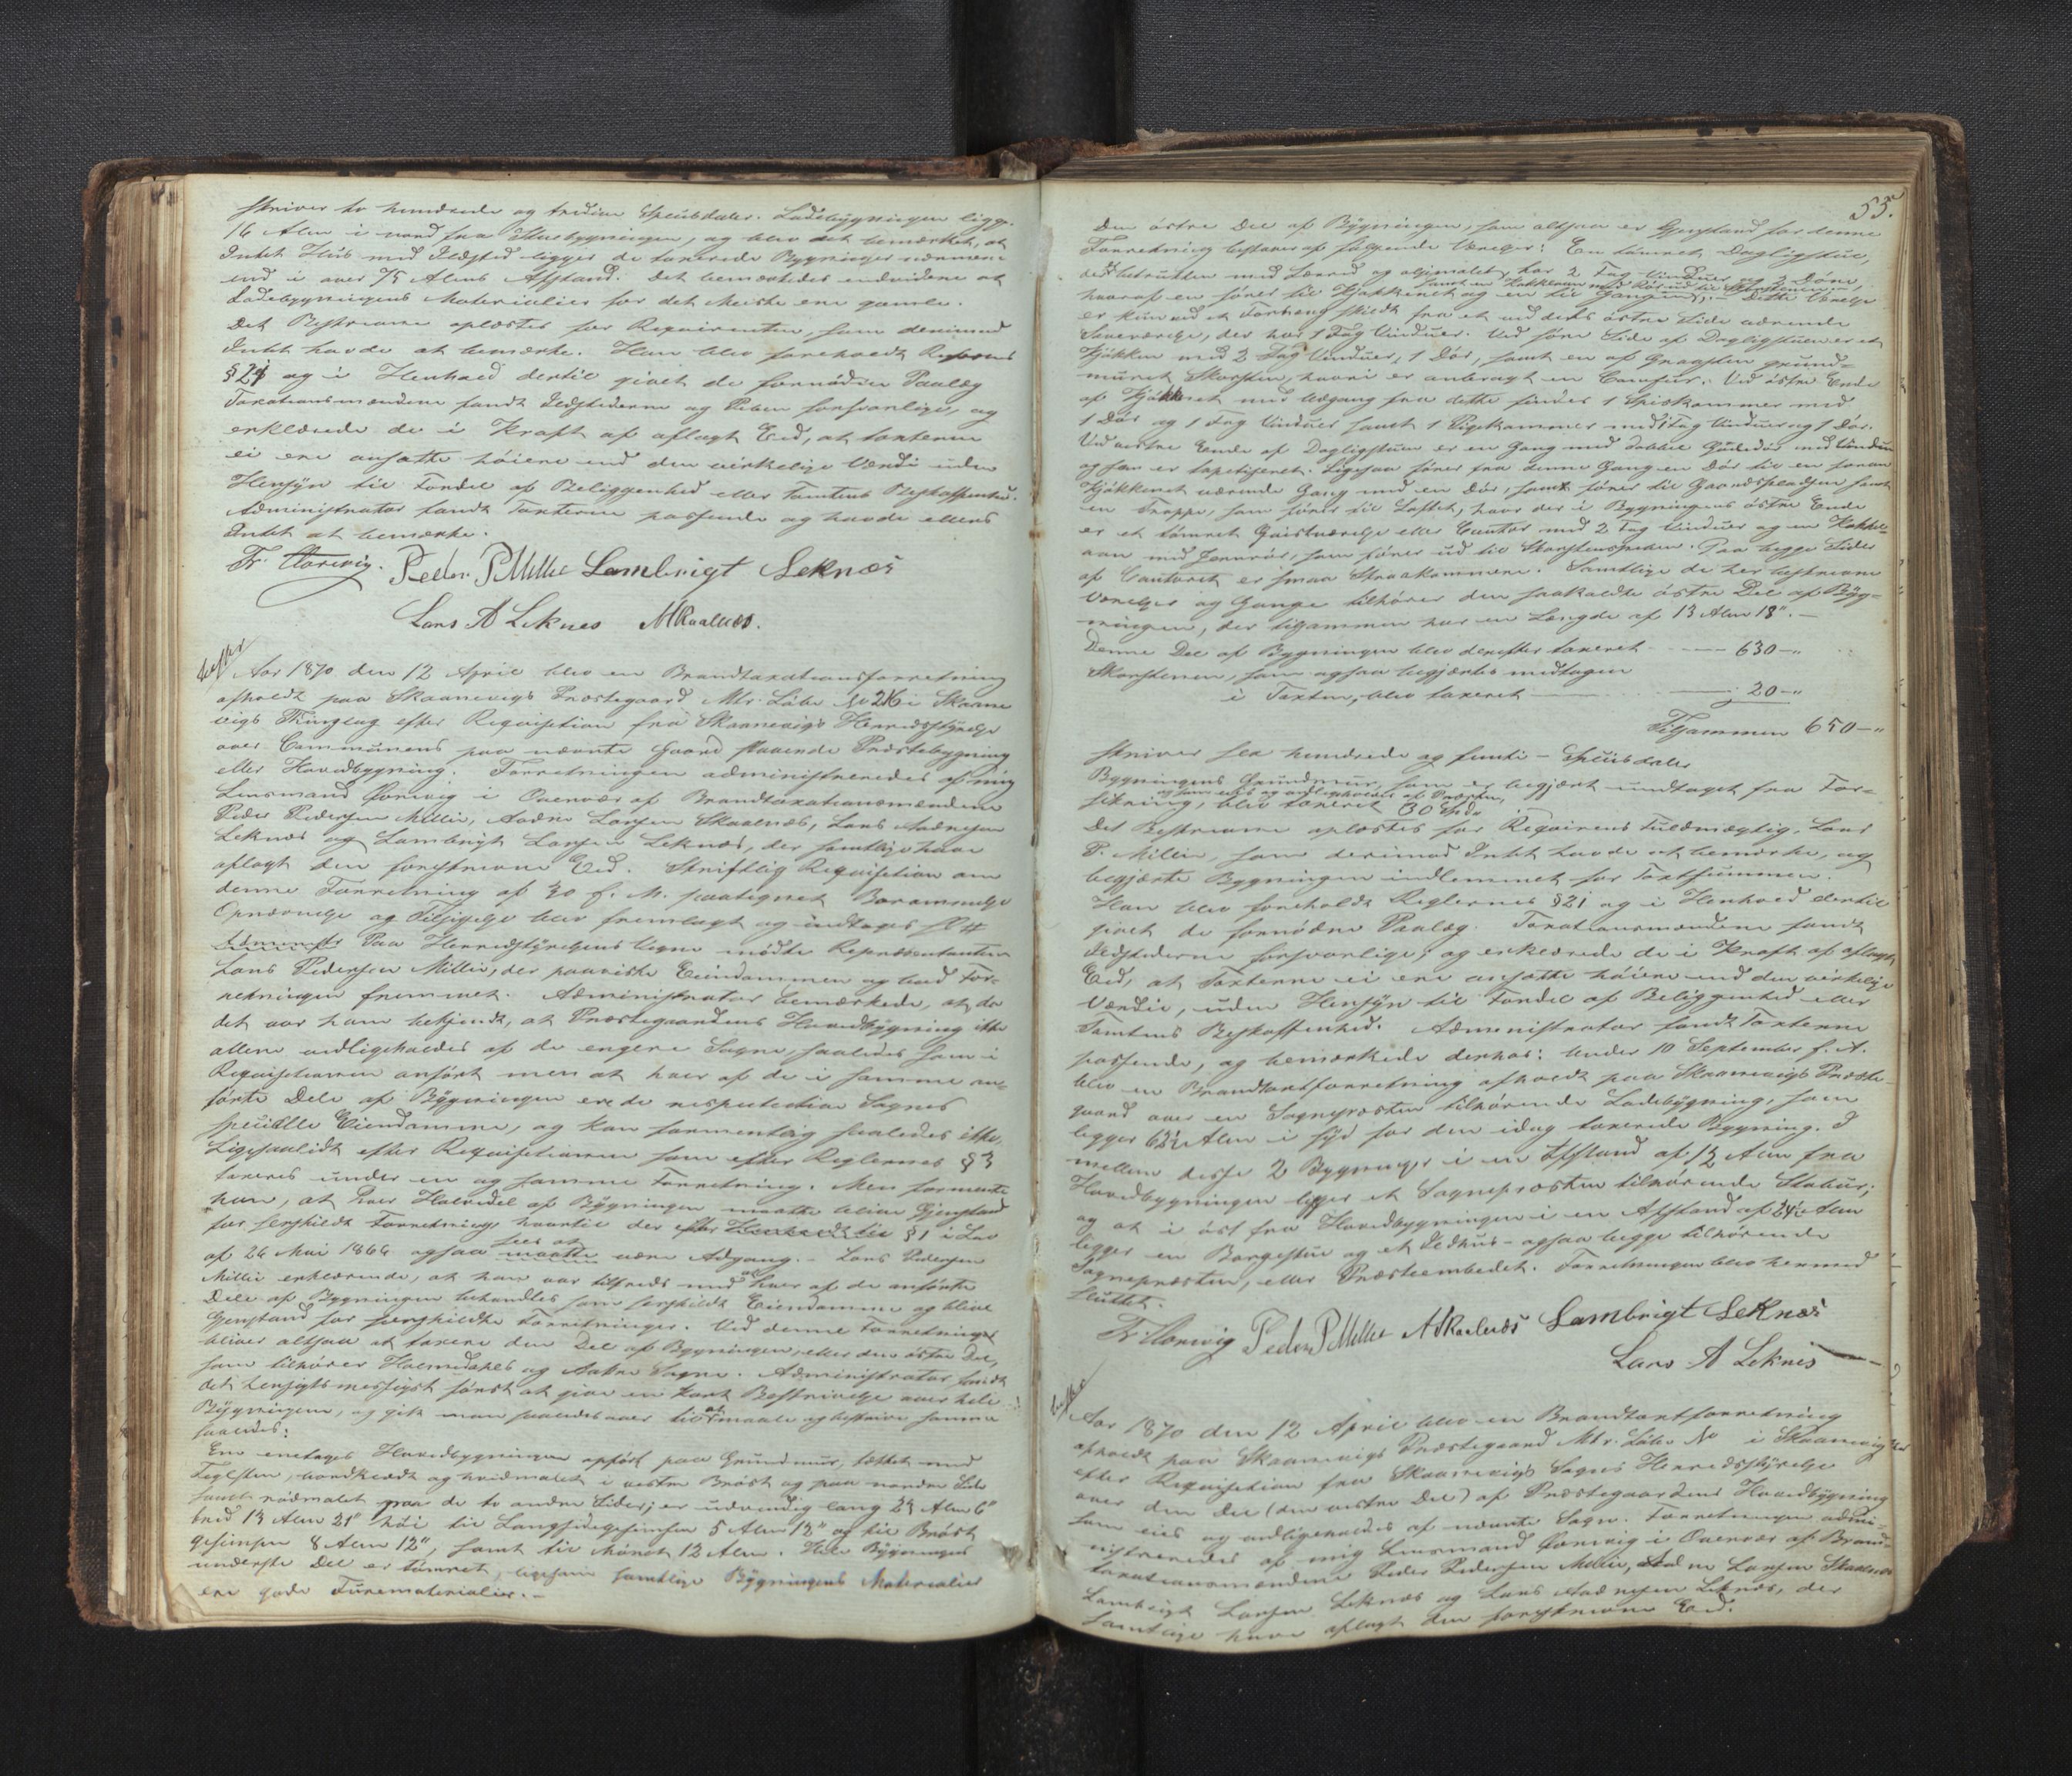 skriver to hundrede og tredive Speciedaler. Ladebygningen ligger
16 Alen i nord fra Stuebygningen, og blev det bemærket, at
Intet Huus med Ildsted ligger de taxerede Bygninger nærmere
end i over 75 Alens Afstand. Det bemærkedes endvidere at
Ladebygningens Materialier for det Meste ere gamle.
Det Beskrevne oplæstes for Requirenten, som derimod
Intet havde at bemærke. Han blev foreholdt Reglernes
§ 21 og i Henhold dertil givet de fornødne Paalæg
Taxationsmændene fandt Ildstederne og Piben forsvarlige, og
erklærede de i Kraft af aflagt Eed, at Taxterne
ei ere ansatte høiere end den virkelige Værdi uden
Hensyn til Fordel af Beliggenhed eller Tomtens Beskaffenhed.
Administrator fandt Taxterne passende og havde ellers
Intet at bemærke.
Fr. Peder P Millie Lambrigt Leknæs
Lars A Leknes ASkaalnæs.
Aar 1870 den 12 April blev en Brandtaxationsforretning
afholdt paa Skaanevigs Præstegaard Mtr. Løbe No 216 i Skaane
vigs Thinglag efter Requisition fra Skaanevigs Herredsstyrelse
over Communens paa nævnte Gaard staaende Præstebygning
eller Hovedbygning. Forretningen administreredes af mig
Lensmand i af Brandtaxationsmændene
Peder Pedersen Millie, Aadne Larsen Skaalnæs, Lars Aadnesen
Leknæs og Lambrigt Larsen Leknæs, der samtlige have
aflagt den foreskrevne Eed. Skriftlig Requisition om
denne Forretning af 30 f. M. paategnet Berammelse
Opnævnelse og Tilsigelse blev fremlagt og indtages
Administr Paa Herredstyrelsens Vegne mødte Repræsentanten
Lars Pedersen Millie, der paaviste Eiendommen og bad For-
retningen fremmet. Administrator bemærkede, at da
det var ham bekjendt, at Præstegaardens Hovedbygning ikke
allene vedligeholdes af de engere Sogne, saaledes som i
Requisitionen anført men at hver af de i samme an-
førte Dele af Bygningen ere de respective Sognes
specielle Eiendomme, og kan formentlig saaledes ikke
Ligesaalidt efter Requisitionen som efter Reglernes § 3
taxeres under en og samme Forretning. Men formente
han, at hver Halvedel af Bygningen maatte blive Gjenstand
for serskildt Forretning, hvortil der efter Henhold til § 1 i Lov
af 26 Mai 1866 ogsaa maatte være Adgang. – Lars Pedersen
Millie erklærende, at han var tilfreds med at hver af de anførte
Dele af Bygningen behandles som serskildt Eiendomme og blive
Gjenstand for særskildte Forretninger. Ved denne Forretning
bliver altsaa at taxere den Del af Bygningen, eller den østre Del,
som tilhører Holmedahls og Aakre Sogne. Administrator fandt
det hensigtsmessigst først at give en kort Beskrivelse over hele
Bygningen, og gik man saaledes over til at maale og beskrive samme
saaledes:
En eenetages Hovedbygningen opført paa Grundmuur, tækket med
Teglsten, bordklædt og hvidmalet i vestre Brøst og paa nordre Side
samt rødmalet paa de to andre Sider; er udvendig lang 29 Alen 6"
bred 13 Alen 21" høi til Langsidegesimsen 5 Alen 12" og til Brøst
gesimsen 8 Alen 12", samt til Mønet 12 Alen. Hele Bygningens
underste Del er tømret, ligesom samtlige Bygningens Materialier
ere gode Furematerialier. –
55.
Den østre Del af Bygningen, som altsaa er Gjenstand for denne
Forretning bestaar af følgende Værelser: En tømret Dagligstue,
med Lærred og oljemalet, har 2 Fag Vinduer og 3 Døre,
samt en Kakkelovn med Rør ud til Skorstenen; –
hvoraf en fører til Kjøkkenet og en til Gangen; – Dette Værelse
er kun ved et Forhæng skildt fra et ved dets østre Side værende
Soveværelse, der har 1 Fag Vinduer. Ved søre Side af Dagligstuen er et
Kjøkken med 2 Fag Vinduer, 1 Dør, samt en af Graasten grund-
muret Skorsten, hvori er anbragt en Comfur. Ved østre Ende
af Kjøkkenet med Udgang fra dette findes 1 Spiskammer med
1 Dør og 1 Fag Vinduer samt 1 Pigekammer med 1 Fag Vinduer og 1 Dør.
Ved vestre Ende af Dagligstuen er en Gang med dobbel Gadedør med Vinduer
og som er tapetseret. Ligesaa fører fra denne Gang en Dør til en foran
Kjøkkenet værende Gang med en Dør, samt fører til Gaardspladsen samt
en Trappe, som fører til Loftet, hvor der i Bygningens østre Ende
er et tømret Gavlværelse eller Contor med 2 Fag Vinduer og en Kakkel-
ovn med Jernrør, som fører ud til Skorstenspiben. Paa begge Sider
af Contoret er smaa Skraakammere. Samtlige de her beskrevne
Værelser og Gange tilhører den saakaldte østre Del af Byg-
ningen, der tilsammen har en Længde af 13 Alen 18". –
Denne Del af Bygningen blev derefter taxeret – 630 –"
Skorstenen, som ogsaa begjærtes medtagen
i Taxten, blev taxeret – 20 –"
Tilsammen 650 –"
skriver sex hundrede og femti – Speciedaler
Bygningens Grundmuur, som er begjært undtaget fra For-
og som eies og vedligeholdes af Præsten,
sikring, blev taxeret 30 Spd. –
Det Beskrevne oplæstes for Requirentens Fuldmægtig, Lars
P. Millie, som derimod Intet havde at bemærke, og
begjærte Bygningen indlemmet for Taxtsummen.
Han blev foreholdt Reglernes § 21 og i Henhold dertil
givet de fornødne Paalæg. Taxationsmændene fandt
Ildstederne forsvarlige, og erklærede de i Kraft af aflagt
Eed, at Taxterne ei ere ansatte høiere end den virkelige
Værdie, uden Hensyn til Fordel af Beliggenhed eller
Tomtens Beskaffenhed. Administrator fandt Taxterne
passende, og bemærkede derhos: Under 10 September f. A.
blev en Brandtaxtforretning afholdt paa Skaanevigs Præste-
gaard over en Sognepræsten tilhørende Ladebygning, som
ligger 62½ Alen i syd for den idag taxerede Bygning. I
mellem disse 2 Bygninger i en Afstand af 12 Alen fra
Hovedbygningen ligger et Sognepræsten tilhørende Stabur;
og at i øst fra Hovedbygningen i en Afstand af 24½ Alen
ligger en Borgestue og et Ildhus – ogsaa begge tilhørende
Sognepræsten, eller Præsteembedet. Forretningen blev hermed
sluttet.
Peder P Millie ASkaalnæs Lambrigt Leknæs
Lars A Leknes
Aar 1870 den 12 April blev en Brandtaxtforretning
afholdt paa Skaanevigs Præstegaard Mtr. Løbe No i Skaanevig
efter Requisition fra Skaanevigs Sogns Herredsstyrelse
over den Del (den vestre Del) af Præstegaardens Hovedbygning
som eies og vedligeholdes af nævnte Sogn. Forretningen admi-
nistreredes af mig Lensmand i af Brand-
taxationsmændene Peder Pedersen Millie, Aadne Larsen Skaalnæs
Lambrigt Larsen Leknæs og Lars Aadnesen Leknæs, der
samtlige have aflagt den foreskrevne Eed.